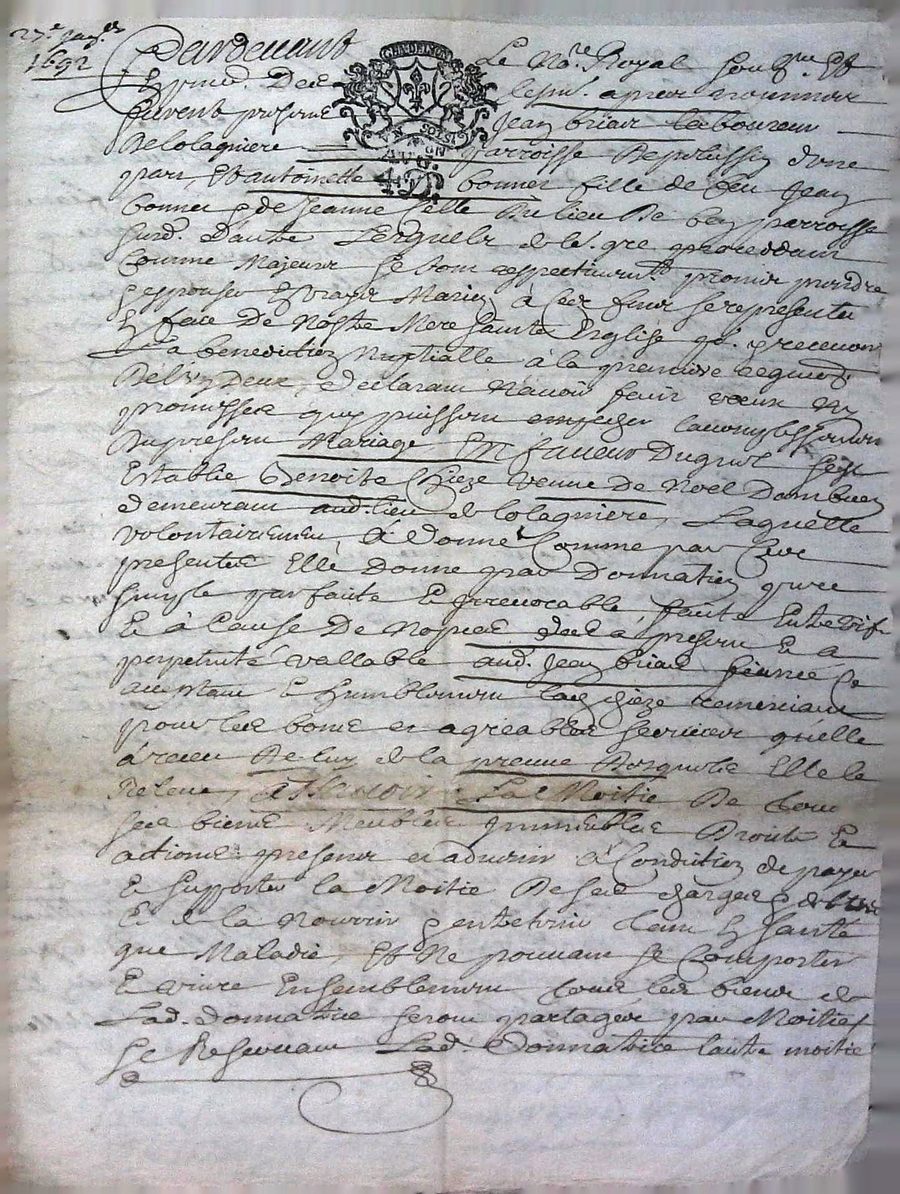 27e Janer
1692
Pardevant Le Nore Royal soubsne Et
En prnce Des tesms apres nommes
furent presents Jean briat laboureur
De lolagniere parroisse De plussin d'une
part, Et antoinette bonner fille de feu Jean
bonner & de Jeanne Celle Du lieu De parroisse
surd. D'autre Lesquels de le. gre proceddant
Comme Majeurs se sont respectivement promis prendre
& espouser En vraye Mariez à ces fins se representer
En face De Nostre Mere Sainte Eglise po. recevoir
La benediction Nuptialle à la premiere requise
De l'un Deux, declarant N'avoir fait vœux Ny
promesses qui puissent empecher l'accomplissement
Du present Mariage En faveur Duquel s'est
Establie Benoite Chieze veuve De Noel Dambuen
demeurant aud. lieu de lolagniere, Laquelle
volontairement, à donné Comme par Ces
presentes Elle Donne par Donnation pure
simple parfaite Et irrevocable faite Entre vifs
Et à Cause De Nopces, des à present Et à
perpetuité vallable aud. Jean briat fiancé Ce
acceptant & humblement lad. chieze remerciant
pour les bons et agreables services qu'elle
à receu De luy de la preuve Desquels Elle le
Releve, A Scavoir La Moitié De tous
ses biens Meubles Immeubles Droits Et
actions presents et advenir à Condition de payer
Et supporter la Moitié De ses charges & debtes
Et de la Nourrir & entretenir tant En santé
que Maladie, Et Ne pouvant se Comporter
Et vivre Ensemblement tous les biens de
Lad. donnatrice seront partages par Moitié
Se Reservant Lad. Donnatrice l'autre moitié